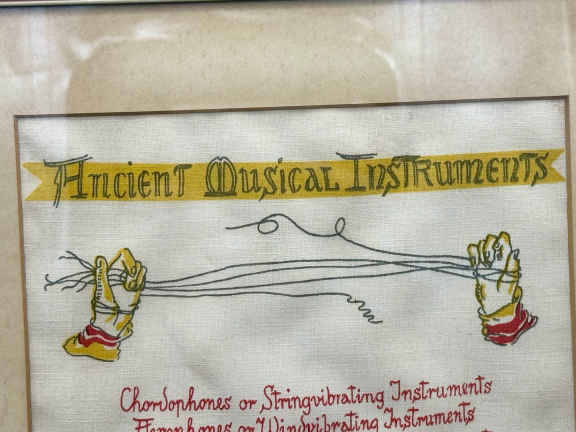 Ancient Musical Instruments
Chordophones or Stringvibrating Instruments
Aerophones or Windvibrating Instruments